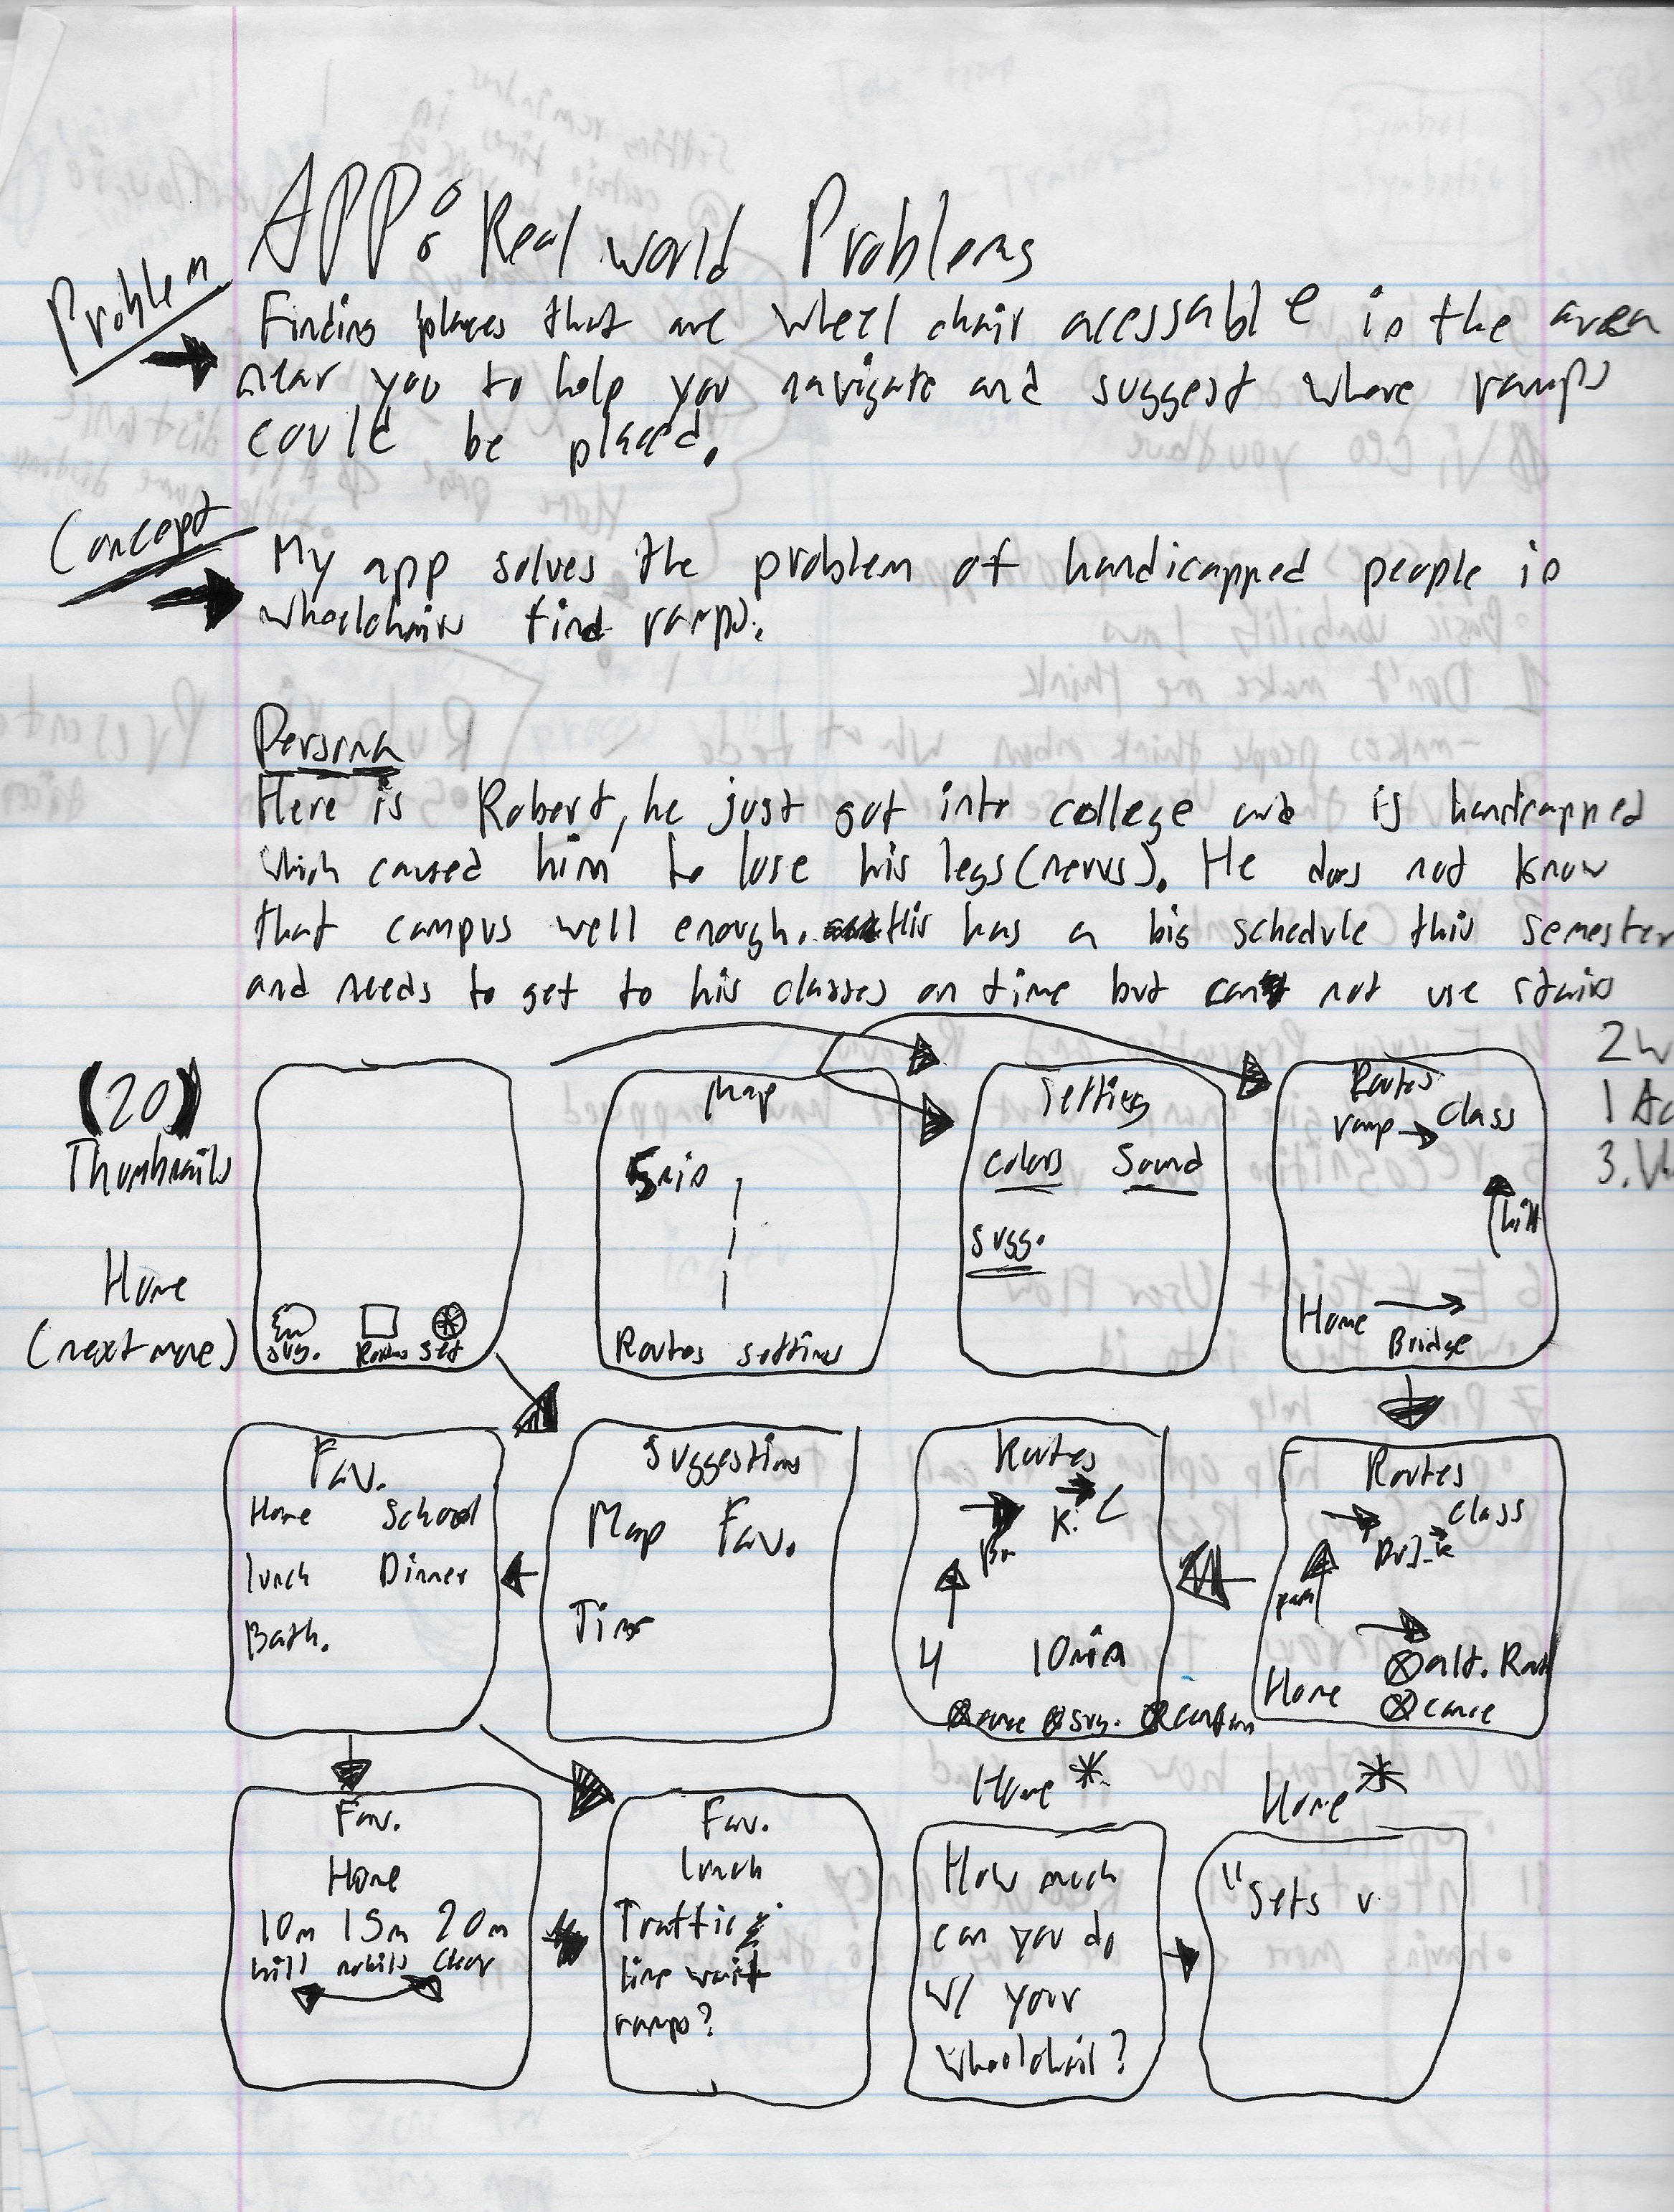 APP: Real world Problems
Problem
Finding places that are wheel chair acessable in the area
near you to help you navigate and suggest where ramps
could be placed.
Concept
My app solves the problem of handicapped people in
wheelchairs find ramps.
Persona
Here is Robert, he just got into college and is handicapped
which caused him to lose his legs (nervs). He does not know
that campus well enough. has a big schedule this semester
and needs to get to his classes on time but can not use stairs
(20)
Thumbnails
Home
(next more)
sug. Routes set
Map
5min
Routes settings
Settings
colors Sound
Sugg.
Routes
ramp → Class
hill
Home
Bridge
2w
1 Ac
3.
Fav.
Home School
lunch Dinner
Bath.
Suggestions
Map Fav.
Time
Routes
Br K. C
4 10min
sug.
Routes
class
path
alt. Rout
Home
cance
Home *
Home *
Fav.
Home
10m 15m 20m
hill nohill clear
Fav.
lunch
Traffic
line wait
ramps?
How much
can you do
w/ your
wheelchair?
"Sets v